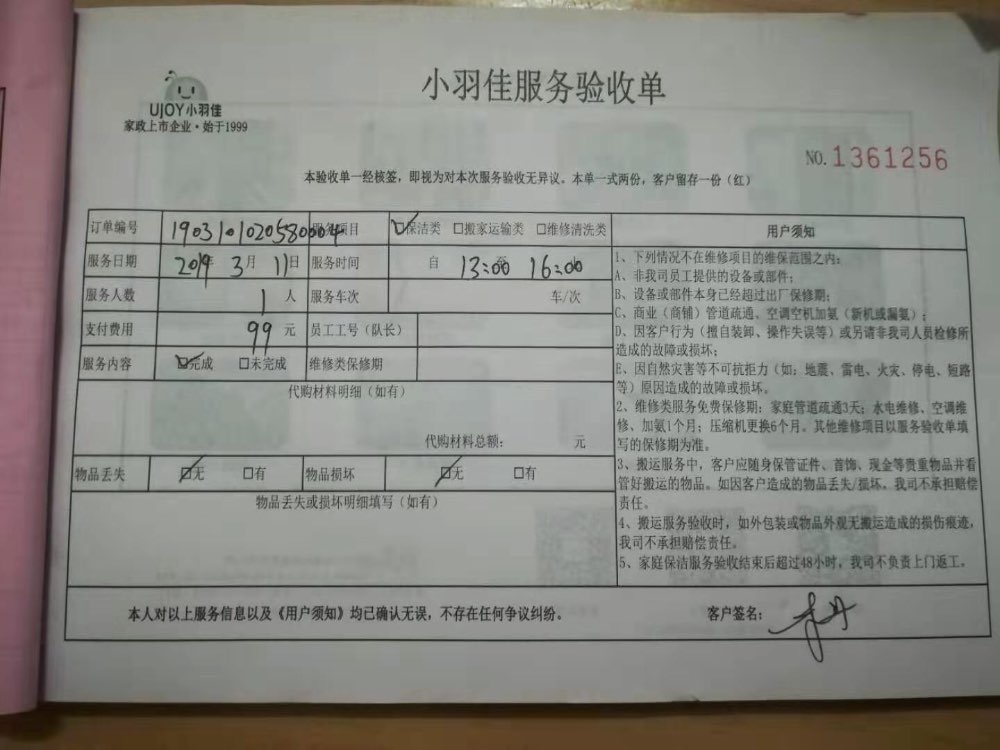 UJOY小羽佳
家政上市企业·始于1999
小羽佳服务验收单
NO.1361256
本验收单一经核签，即视为对本次服务验收无异议。本单一式两份，客户留存一份（红）
订单编号 190310102058004 服务项目 ☑保洁类 □搬家运输类 □维修清洗类
服务日期 2019年 3月 11日 服务时间 自 13:00 至 16:00
服务人数 1 人 服务车次 车/次
支付费用 99 元 员工工号（队长）
服务内容 ☑完成 □未完成 维修类保修期
代购材料明细（如有）
代购材料总额： 元
物品丢失 ☑无 □有 物品损坏 ☑无 □有
物品丢失或损坏明细填写（如有）
用户须知
1、下列情况不在维修项目的维保范围之内：
A、非我司员工提供的设备或部件；
B、设备或部件本身已经超过出厂保修期；
C、商业（商铺）管道疏通、空调空机加氨（新机或漏氨）；
D、因客户行为（擅自装卸、操作失误等）或另请非我司人员检修所
造成的故障或损坏；
E、因自然灾害等不可抗拒力（如：地震、雷电、火灾、停电、短路
等）原因造成的故障或损坏。
2、维修类服务免费保修期：家庭管道疏通3天；水电维修、空调维
修、加氨1个月；压缩机更换6个月。其他维修项目以服务验收单填
写的保修期为准。
3、搬运服务中，客户应随身保管证件、首饰、现金等贵重物品并看
管好搬运的物品。如因客户造成的物品丢失/损坏，我司不承担赔偿
责任。
4、搬运服务验收时，如外包装或物品外观无搬运造成的损伤痕迹，
我司不承担赔偿责任。
5、家庭保洁服务验收结束后超过48小时，我司不负责上门返工。
本人对以上服务信息以及《用户须知》均已确认无误，不存在任何争议纠纷。 客户签名：